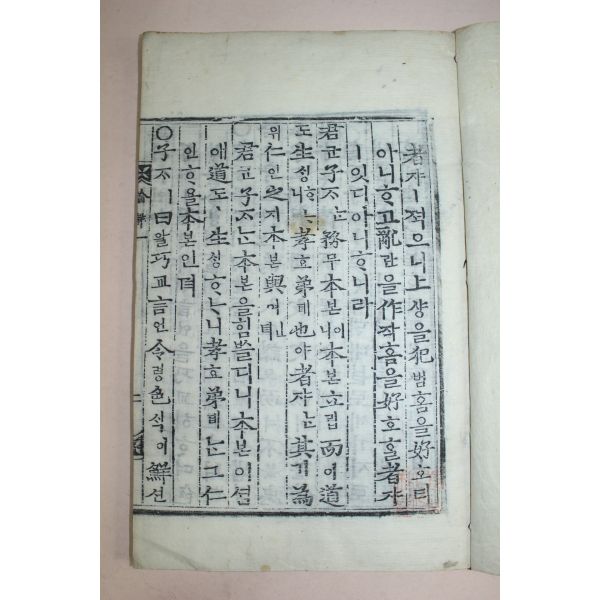 者쟈ㅣ젹으니上샹을犯범홈을好호티
아니ᄒᆞ고亂란을作작홈을好호ᄒᆞᆯ者쟈
ㅣ잇디아니ᄒᆞ니라
君군子ᄌᆞᄂᆞᆫ務무本본이니本본立립而이道
도生ᄉᆡᆼᄒᆞᄂᆞ니孝효弟뎨也야者쟈ᄂᆞᆫ其기爲
위仁인之지本본與여ㅣᆫ뎌
君군子ᄌᆞᄂᆞᆫ本본을힘쓸디니本본이셤
애道도ㅣ生ᄉᆡᆼᄒᆞᄂᆞ니孝효弟뎨ᄂᆞᆫ그仁
인ᄒᆞ욜本본인뎌
○子ᄌᆞㅣ曰왈巧교言언令령色ᄉᆡᆨ이鮮션